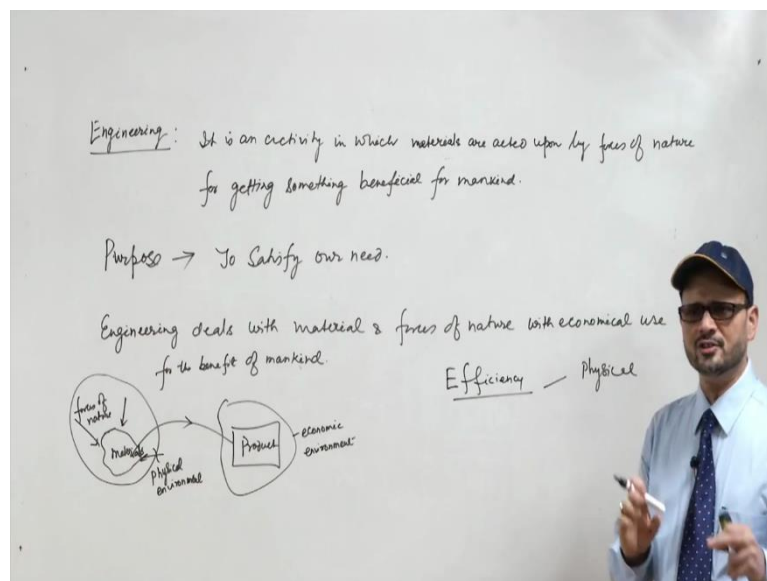 Engineering : It is an activity in which materials are acted upon by forces of nature
for getting something beneficial for mankind.
Purpose → To Satisfy our need.
Engineering deals with material & forces of nature with economical use
for the benefit of mankind.
Efficiency — Physical
forces of
nature
materials
physical
environmental
Product
economic
environment